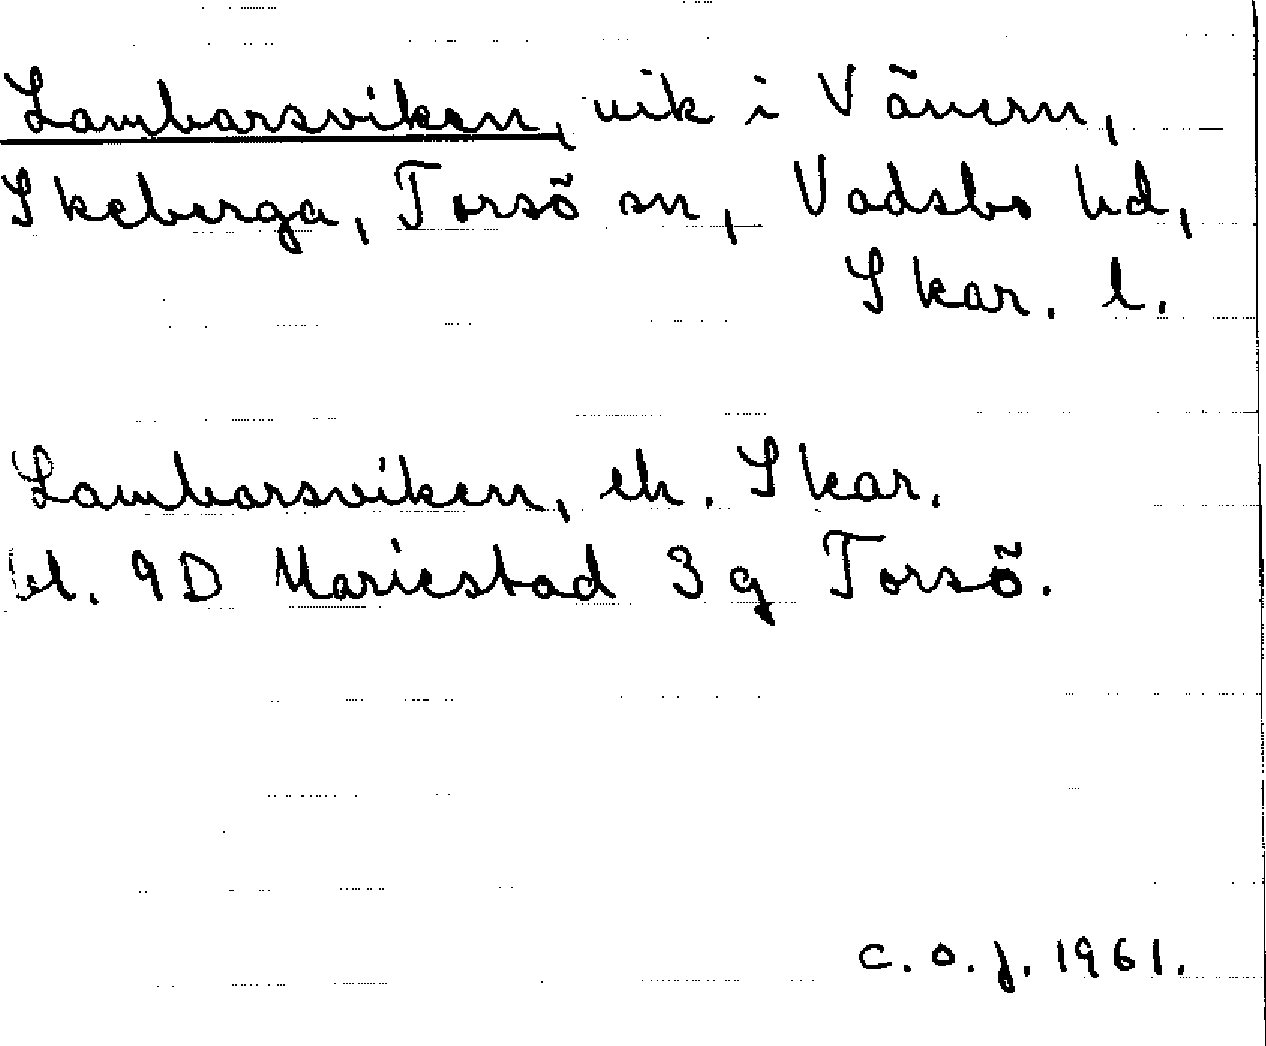 Lambarsviken, vik i Vänern,
Skeberga, Torsö sn, Vadsbo hd,
Skar. l.
Lambarsviken, ek. Skar.
bl. 9D Mariestad 3g Torsö.
C.O.J. 1961.